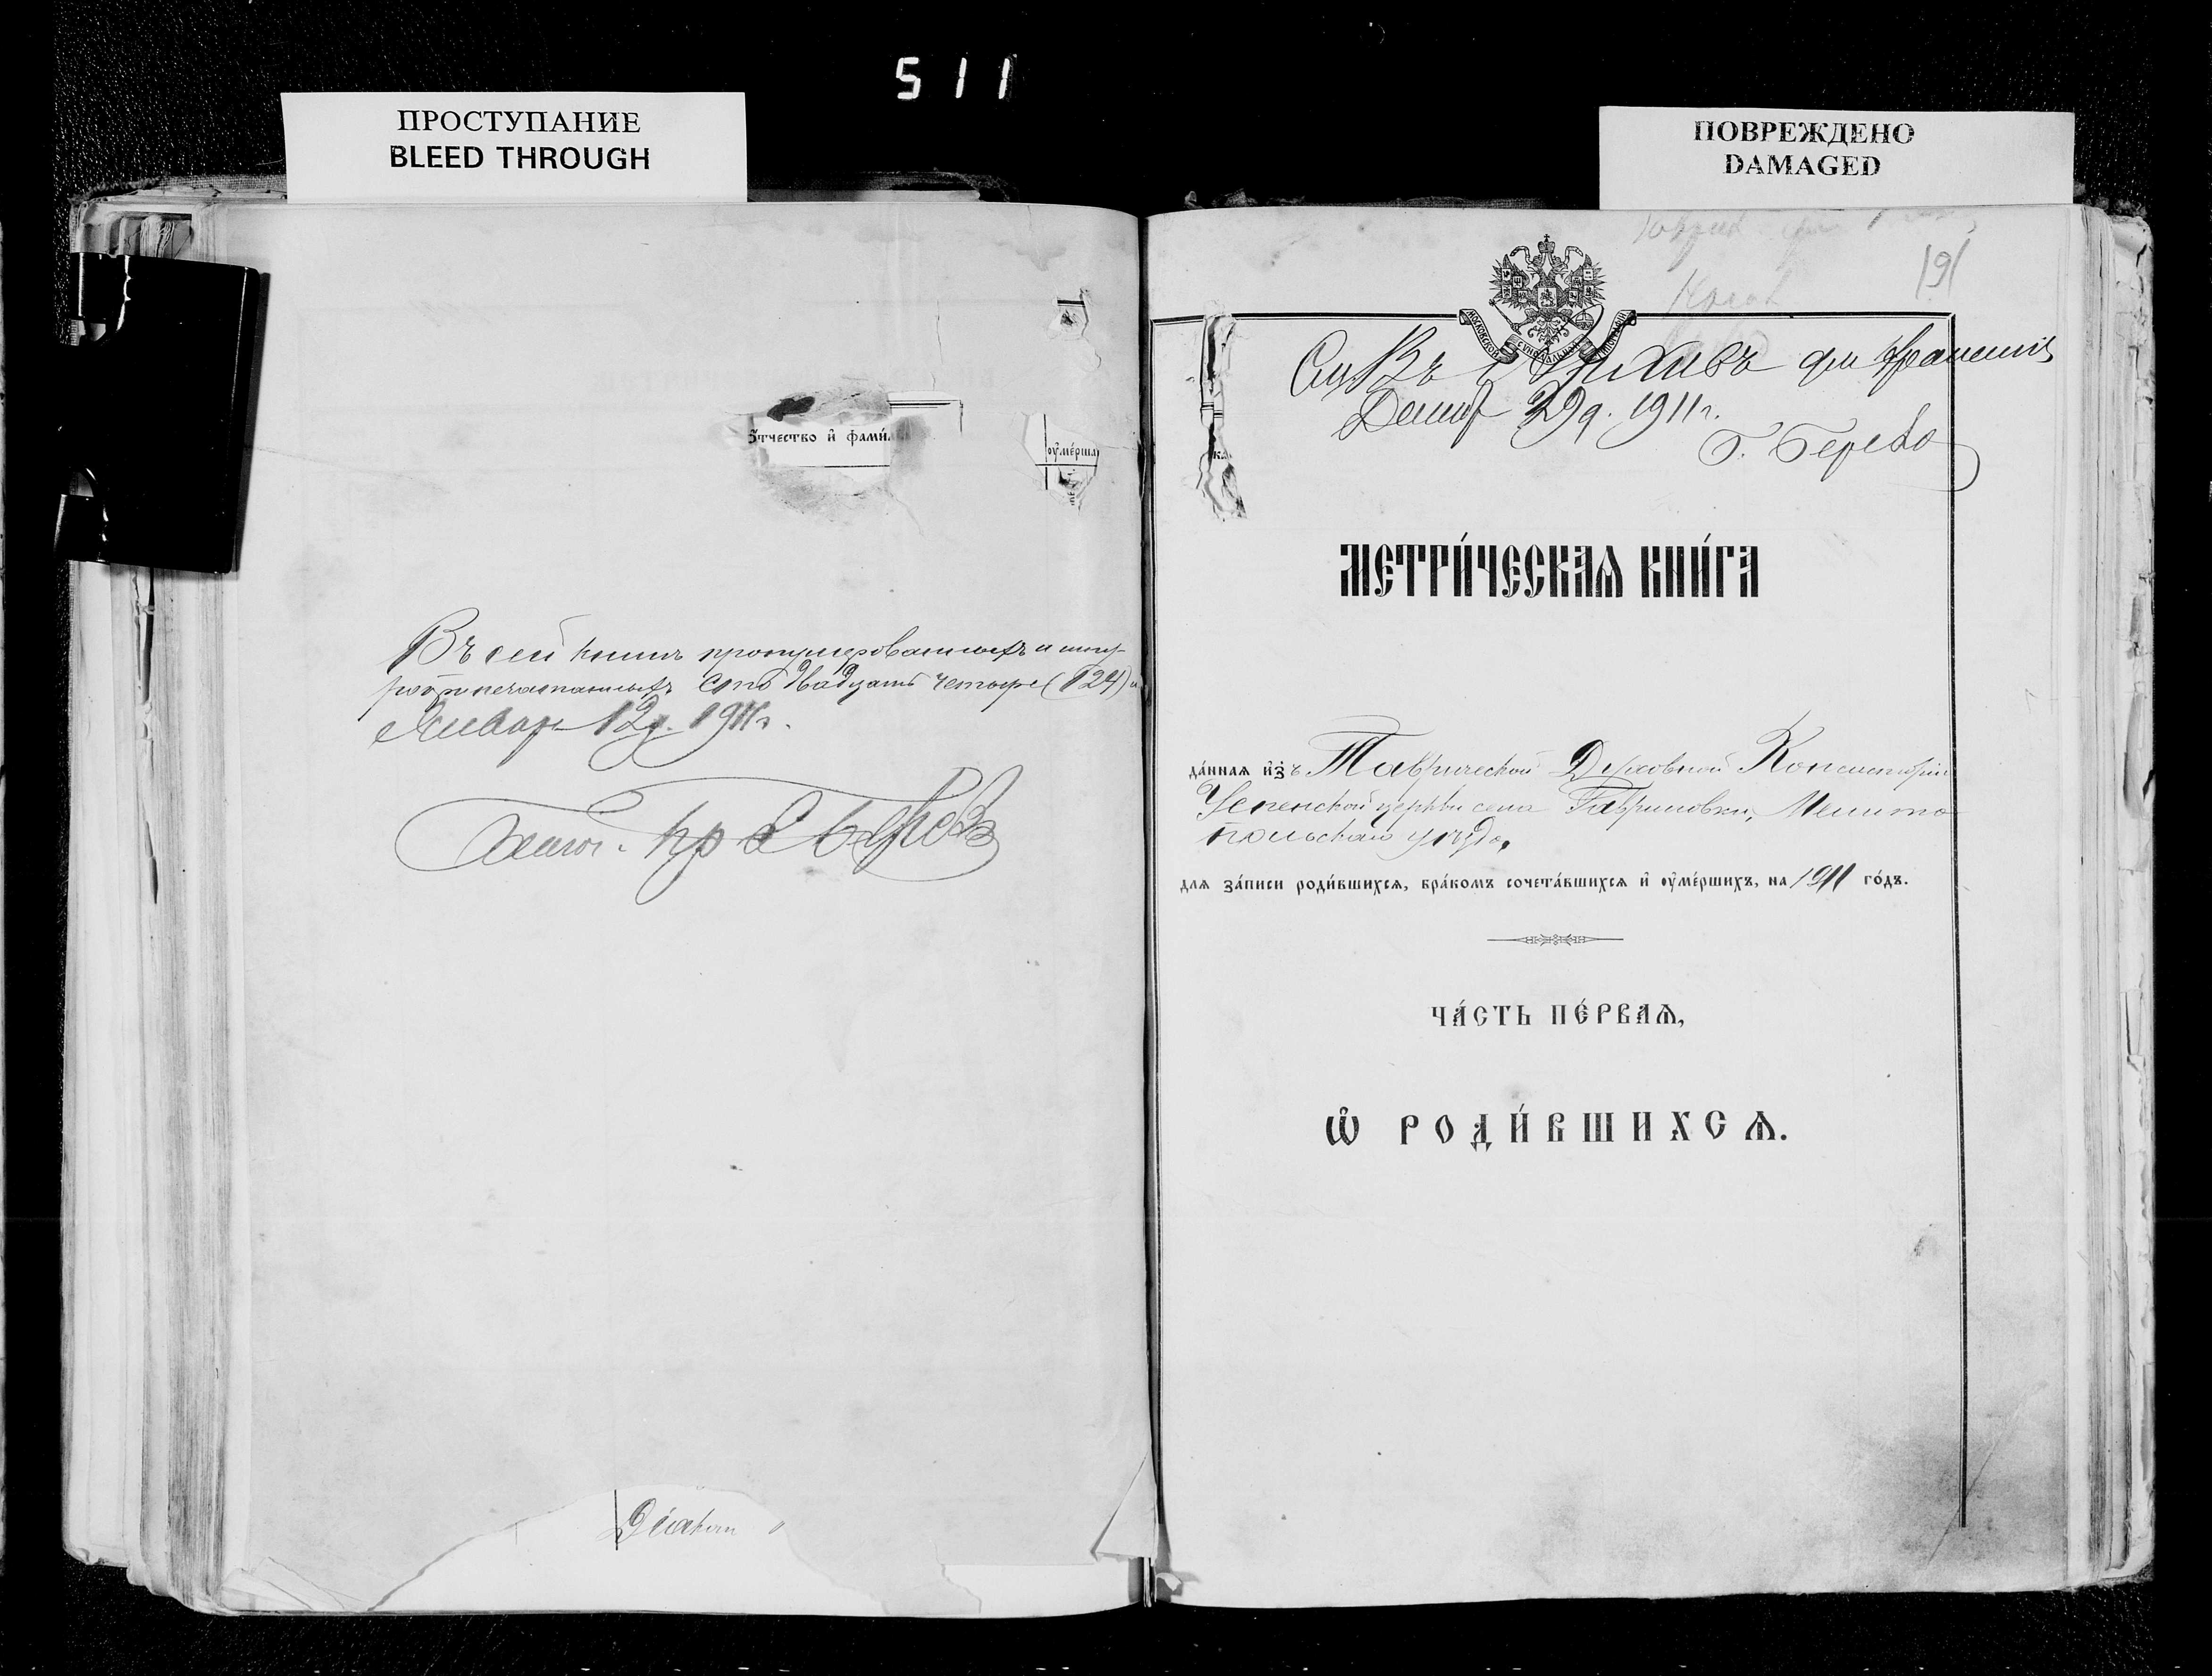 511
ПРОСТУПАНИЕ
BLEED THROUGH
ПОВРЕЖДЕНО
DAMAGED
Ѻтчество и҆ фами́л
оу҆ме́рша
Въ сей книгѣ пронумерованныхъ и шну-
сто двадцать четыре (124)
Январь 12 д. 1911 г.
Діаконъ
191
МОСКОВСКОЙ СѴНОДАЛЬНОЙ ТИПОГРАФІИ
Въ Архивъ для храненія
29 д. 1911 г.
МЕТРИ́ЧЕСКАѦ КНИ́ГА
да́ннаѧ и҆зъ Таврической Духовной Консисторіи
Успенской церкви села Гавриловки, Мелито-
польскаго уѣзда,
длѧ за́писи роди́вшихсѧ, бра́комъ сочета́вшихсѧ и҆ оу҆ме́ршихъ, на 1911 го́дъ.
ЧА́СТЬ ПЕ́РВАѦ,
Ѡ҆ РОДИ́ВШИХСѦ.